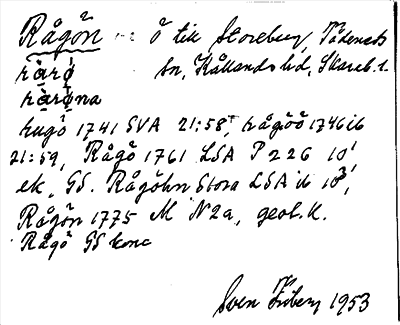 Rågön ö till Storeberg, Tådenäs
sn, Kållands hd, Skarab. l.
rårö
råröna
hugö 1741 SVA 21:58, rågöö 1746 ib
21:59, Rågö 1761 LSA P 226 10¹
ek, GS. Rågöhn Stora LSA ib 10³,
Rågön 1775 M N2a, geol. k.
Rågö GS konc
Sven 1953